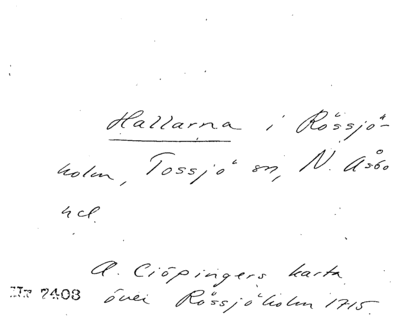 Hallarna i Rössjö-
holm, Tossjö sn, N. Åsbo
hd.
A. Ciöpingers karta
Nr 7408 över Rössjöholm 1715.